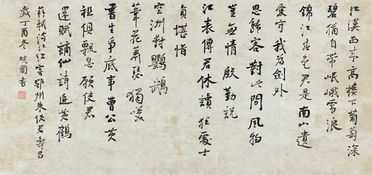 江漢西來高樓下葡萄深
碧猶自帶岷峨雪浪
錦江春色君是南山遺
愛守我為劍外
思歸客對此間風物
豈無情殷勤說
江表傳君休讀狂處士
真堪惜
空洲對鸚鵡
葦花蕭瑟獨笑
書生爭底事曹公黃
祖俱飄忽願使君
還賦謫仙詩追黃鶴
蘇軾滿江紅寄鄂州朱使君壽昌
歲丁酉冬書